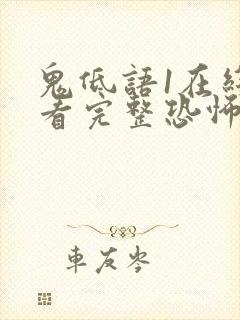 鬼低語1在
看完整恐怖
車友岑